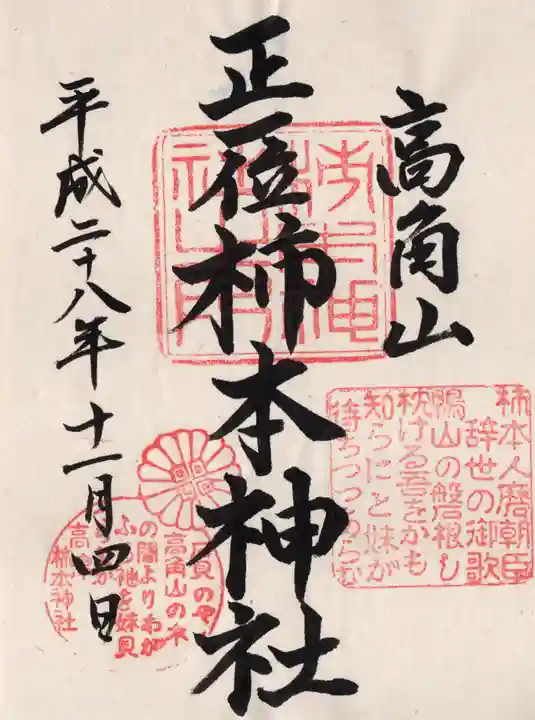 高角山
正一位 柿本神社
平成二十八年十一月四日
柿本人麿朝臣
辞世の御歌
鴨山の磐根し
枕ける吾をかも
知らにと妹が
待ちつつあらむ
高角山の木
の間よりわが
柿本神社